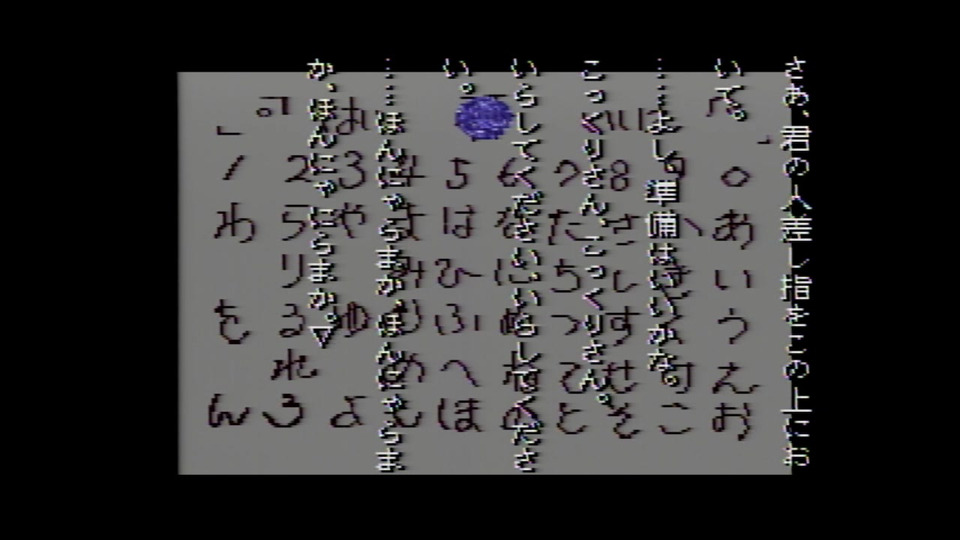 さあ、君の人差し指をこの上にお
いて。
……よし。準備はいいかな。
こっくりさん、こっくりさん。
いらしてくださいいらしてくださ
い。
……ほんにゃらまか、ほんにゃらま
か、ほんにゃにらまか。▽
はい
0
8
7
6
5
4
3
2
1
あいうえお
きけこ
さしすせそ
たちつてと
なにぬねの
はひふへほ
まみむめも
やゆよ
らりるれろ
わをん